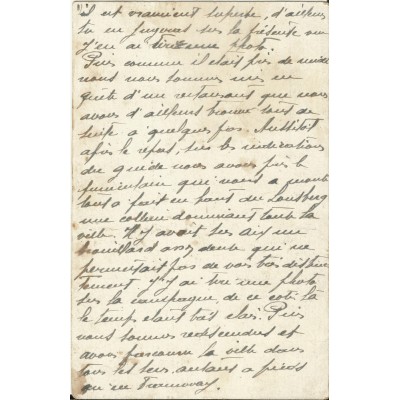 Il est vraiment superbe, d'ailleurs
tu en jugeras sur la présente vu
j'en ai tiré une photo.
Puis comme il était près de midi
nous nous sommes mis en
quête d'un restaurant que nous
avons d'ailleurs trouvé tout de
suite à quelques pas. Aussitôt
après le repas, sur les indications
du guide nous avons pris le
funiculaire qui nous a monté
tout à fait en haut du Lousberg
une colline dominant toute la
ville. Il y avait sur Aix un
brouillard assez dense qui ne
permettait pas de voir très distinc
tement. J'y ai tiré une photo
sur la campagne, de ce côté là
le temps était très clair. Puis
nous sommes redescendus et
avons parcouru la ville dans
tous les sens, autant à pieds
qu'en Tramway.